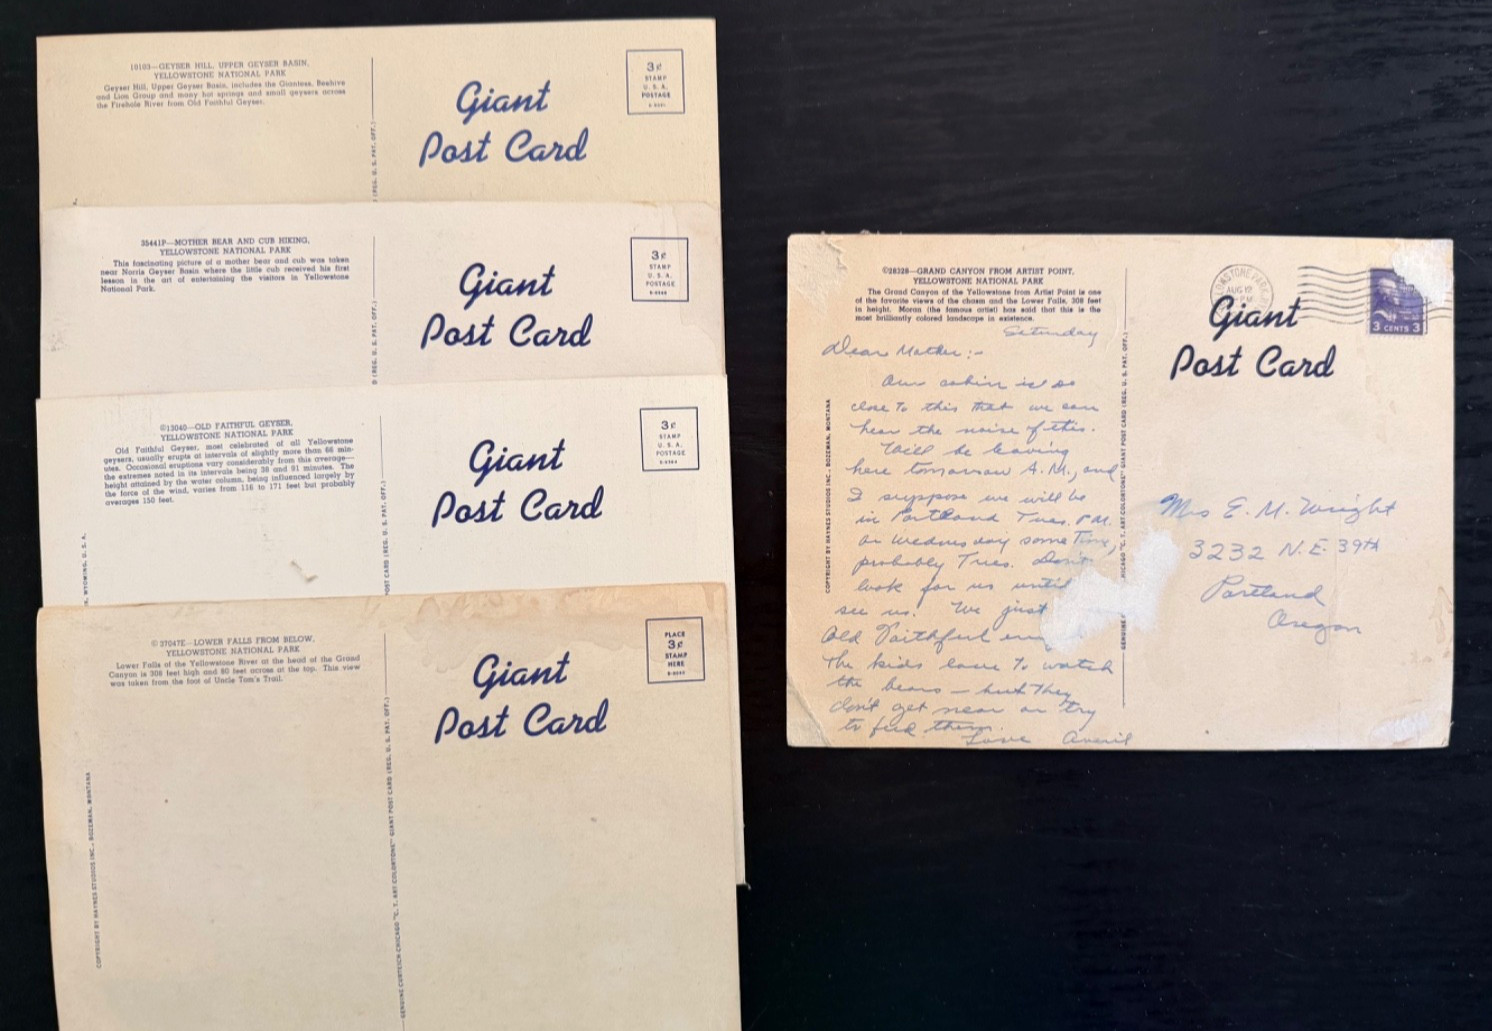 10103—GEYSER HILL, UPPER GEYSER BASIN,
YELLOWSTONE NATIONAL PARK
Geyser Hill, Upper Geyser Basin, includes the Giantess, Beehive
and Lion Group and many hot springs and small geysers across
the Firehole River from Old Faithful Geyser.
(REG. U. S. PAT. OFF.)
Giant
Post Card
3¢
STAMP
U. S. A.
POSTAGE
38441P—MOTHER BEAR AND CUB HIKING,
YELLOWSTONE NATIONAL PARK
This fascinating picture of a mother bear and cub was taken
near Norris Geyser Basin where the little cub received his first
lesson in the art of entertaining the visitors in Yellowstone
National Park.
(REG. U. S. PAT. OFF.)
Giant
Post Card
3¢
STAMP
U. S. A.
POSTAGE
©13040—OLD FAITHFUL GEYSER,
YELLOWSTONE NATIONAL PARK
Old Faithful Geyser, most celebrated of all Yellowstone
geysers, usually erupts at intervals of slightly more than 66 min-
utes. Occasional eruptions vary considerably from this average—
the extremes noted in its intervals being 38 and 91 minutes. The
height attained by the water column, being influenced largely by
the force of the wind, varies from 116 to 171 feet but probably
averages 150 feet.
WYOMING, U. S. A.
POST CARD (REG. U. S. PAT. OFF.)
Giant
Post Card
3¢
STAMP
U. S. A.
POSTAGE
© 37047E—LOWER FALLS FROM BELOW,
YELLOWSTONE NATIONAL PARK
Lower Falls of the Yellowstone River at the head of the Grand
Canyon is 308 feet high and 80 feet across at the top. This view
was taken from the foot of Uncle Tom's Trail.
COPYRIGHT BY HAYNES STUDIOS INC., BOZEMAN, MONTANA
GENUINE CURTEICH-CHICAGO "C. T. ART COLORTONE" GIANT POST CARD (REG. U. S. PAT. OFF.)
Giant
Post Card
PLACE
3¢
STAMP
HERE
©28328—GRAND CANYON FROM ARTIST POINT,
YELLOWSTONE NATIONAL PARK
The Grand Canyon of the Yellowstone from Artist Point is one
of the favorite views of the chasm and the Lower Falls, 308 feet
in height. Moran (the famous artist) has said that this is the
most brilliantly colored landscape in existence.
Saturday
Dear Mother:-
Our cabin is so
close to this that we can
hear the noise of this.
Will be leaving
here tomorrow A.M., and
I suppose we will be
in Portland Tues. P.M.
or Wednesday some time,
probably Tues. Don't
look for us until
see us. We just
Old Faithful
The kids love to watch
the bears — but they
don't get near or try
to feed them.
Love Averil
COPYRIGHT BY HAYNES STUDIOS INC., BOZEMAN, MONTANA
GENUINE CHICAGO "C. T. ART COLORTONE" GIANT POST CARD (REG. U. S. PAT. OFF.)
AUG 12
PM
3 CENTS 3
Giant
Post Card
Mrs E. M. Wright
3232 N.E. 39th
Portland
Oregon